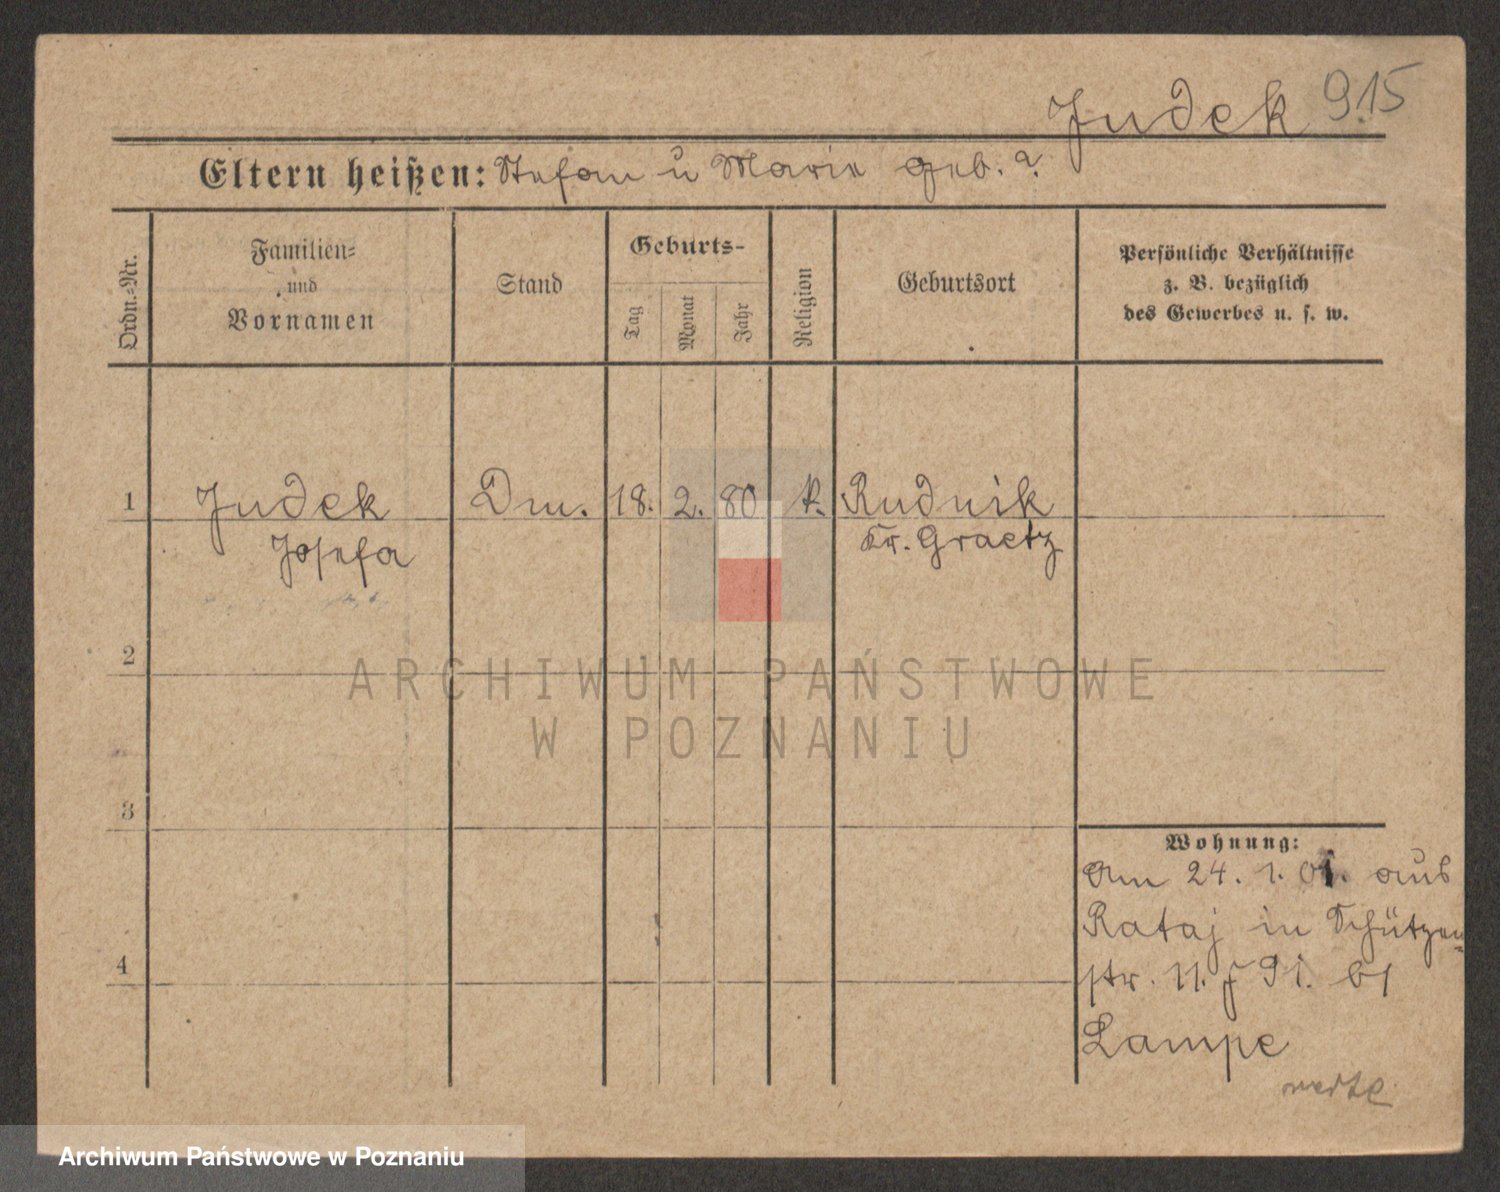 Judek 915
Eltern heißen: Stefan u Marie geb. ?
Ordn.-Nr.
Familien-
und
Vornamen
Stand
Geburts-
Tag
Monat
Jahr
Religion
Geburtsort
Persönliche Verhältnisse
z. B. bezüglich
des Gewerbes u. s. w.
1 Judek Dm. 18. 2. 80 k. Rudnik
Josefa Kr. Graetz
2
ARCHIWUM PAŃSTWOWE
W POZNANIU
3
Wohnung:
Am 24. 1. 01. aus
Rataj in Schützen-
4
str. 11. 91. bs
Lampe
Archiwum Państwowe w Poznaniu